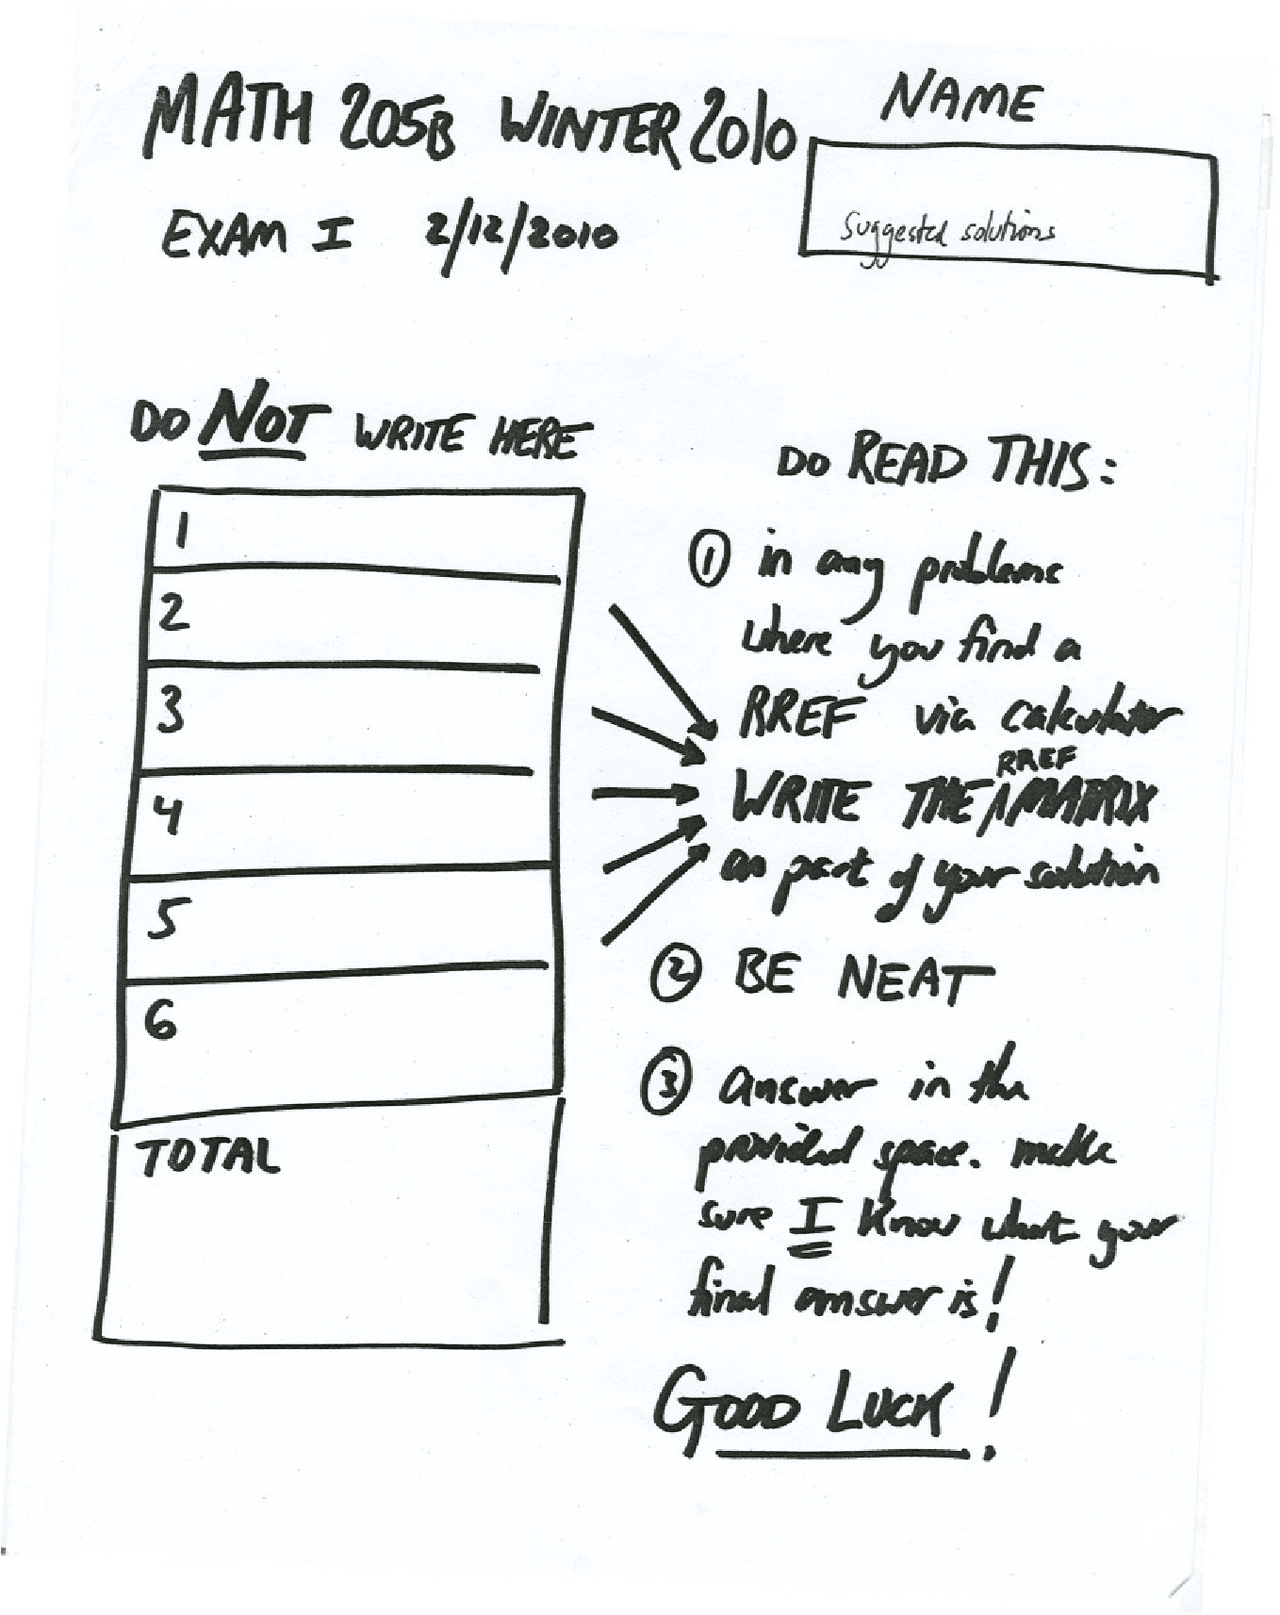 MATH 205B WINTER 2010
NAME
Suggested solutions
EXAM I 2/12/2010
DO NOT WRITE HERE
1
2
3
4
5
6
TOTAL
DO READ THIS:
① in any problems
where you find a
RREF via calculator
RREF
WRITE THE ∧ MATRIX
as part of your solution
② BE NEAT
③ answer in the
provided space. make
sure I know what your
final answer is!
GOOD LUCK!